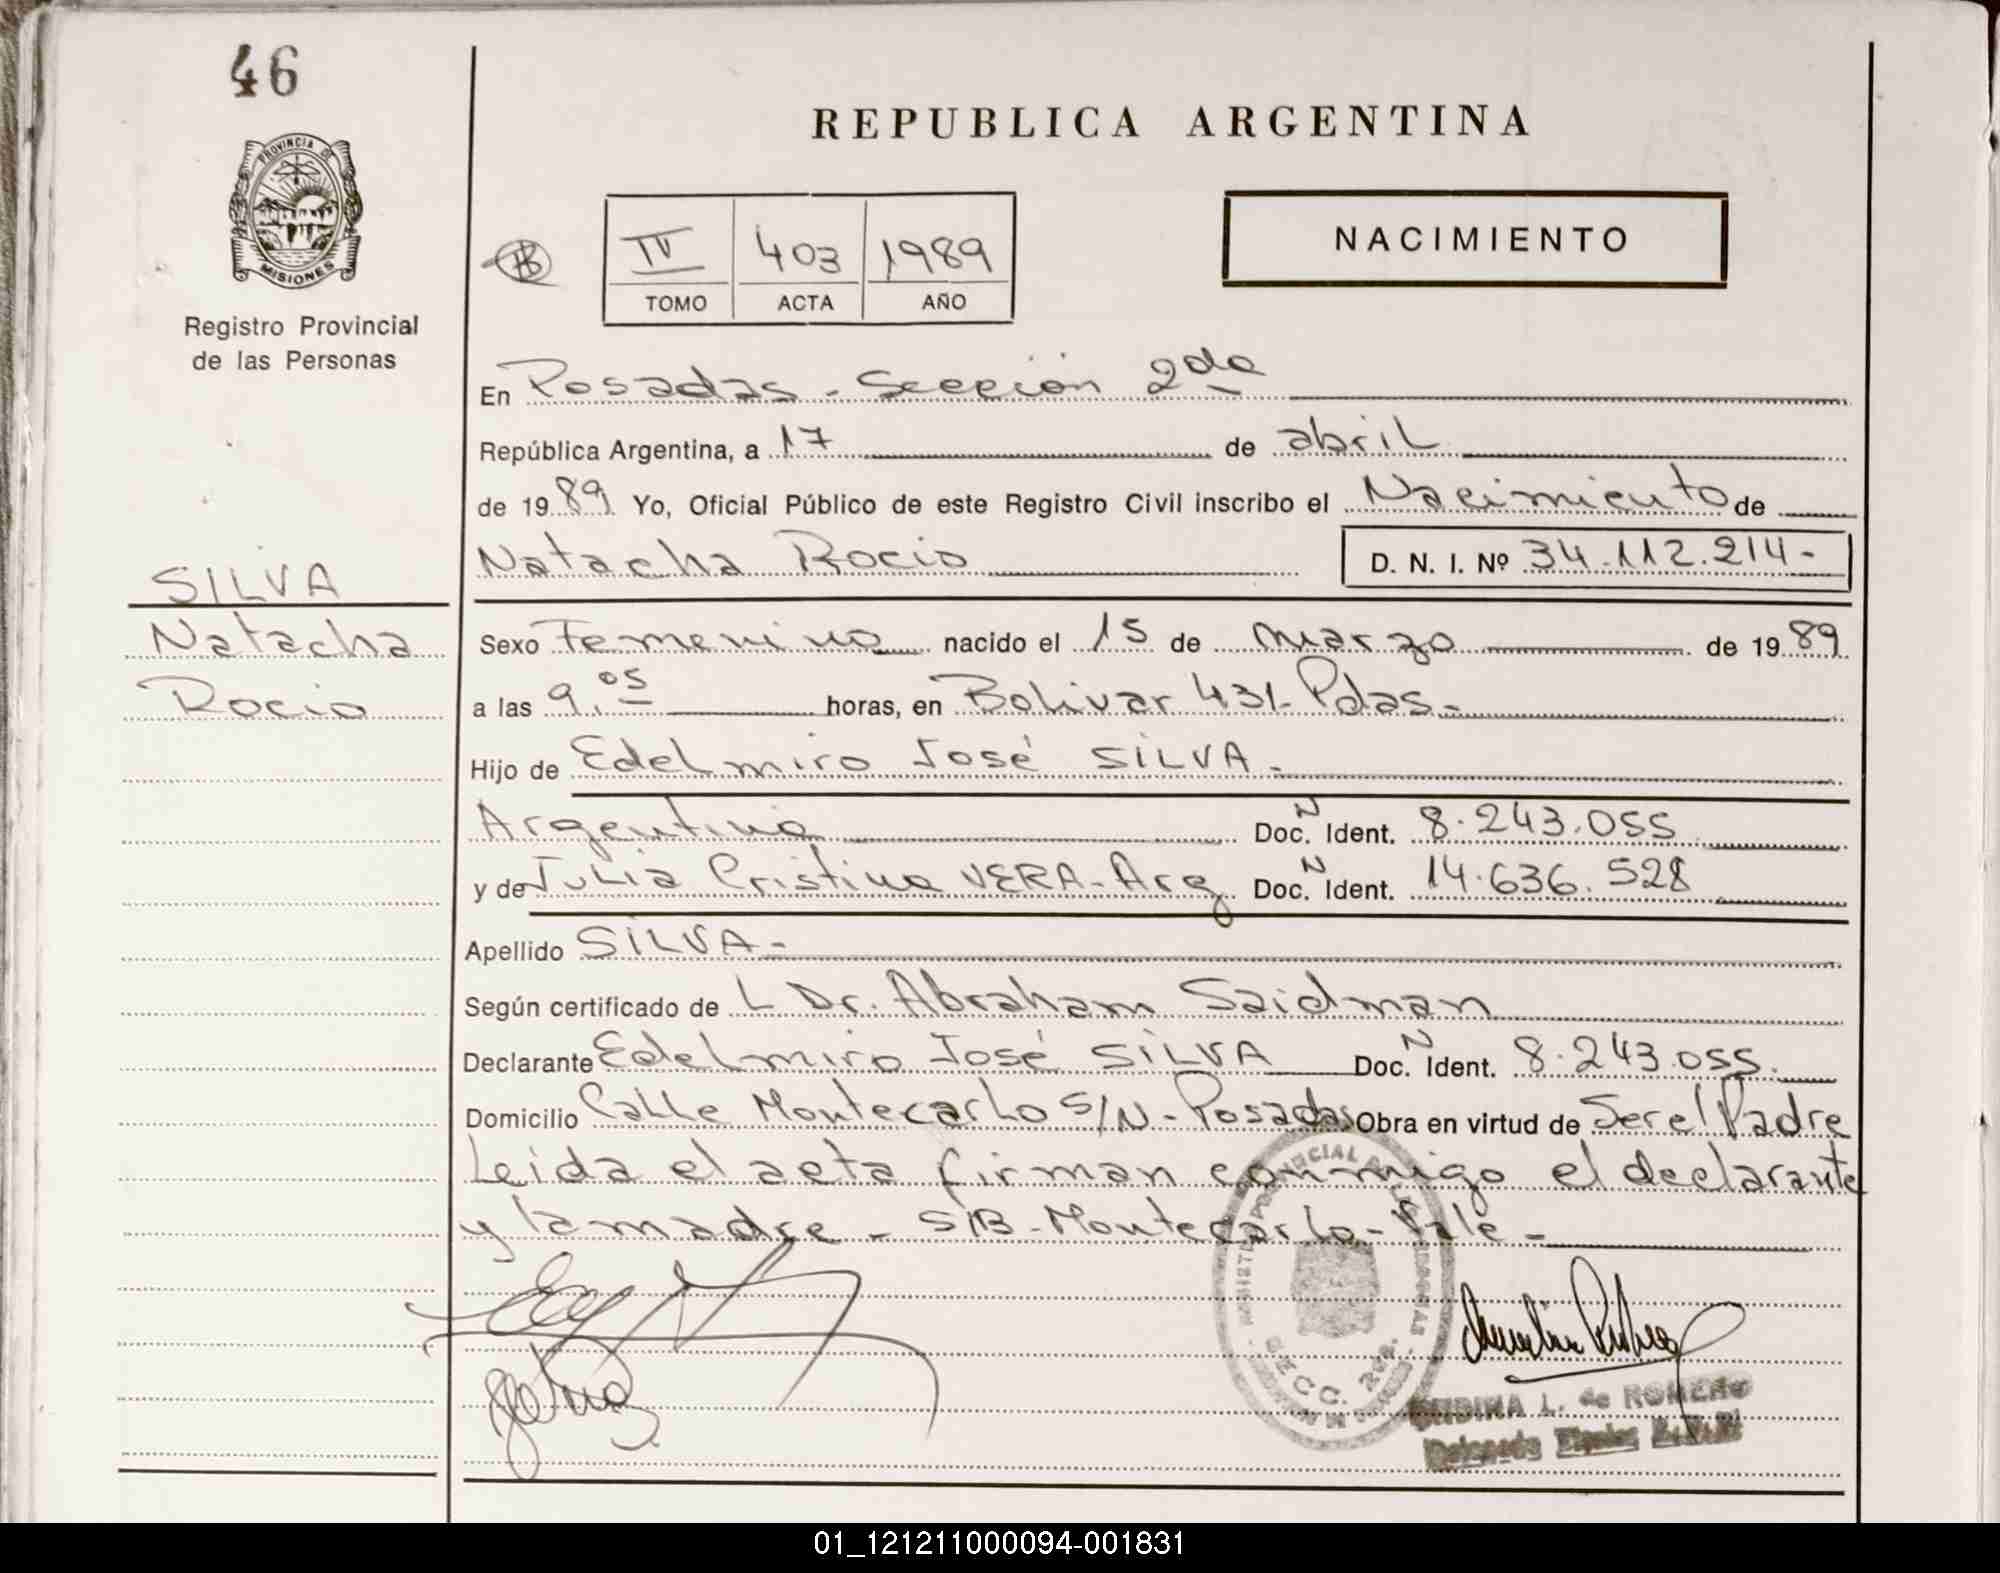 46
REPUBLICA ARGENTINA
PROVINCIA DE
MISIONES
Registro Provincial
de las Personas
IV 403 1989
TOMO ACTA AÑO
NACIMIENTO
En Posadas - Sección 2da
República Argentina, a 17 de abril
de 1989 Yo, Oficial Público de este Registro Civil inscribo el Nacimiento de
Natacha Rocio D. N. I. Nº 34.112.214-
SILVA
Natacha
Rocio
Sexo Femenino nacido el 15 de marzo de 1989
a las 9.05 horas, en Bolivar 431- Pdas-
Hijo de Edelmiro José SILVA-
Argentino Doc. N Ident. 8.243.055
y de Julia Cristina VERA-Arg Doc. N Ident. 14.636.528
Apellido SILVA-
Según certificado de L Dr. Abraham Saidman
Declarante Edelmiro José SILVA Doc. N Ident. 8.243.055.
Domicilio Calle Montecarlo S/N-Posadas Obra en virtud de Ser el Padre
Leida el acta firman conmigo el declarante
y la madre - S/B-Montecarlo-Vale-
SECC. 2da.
L. de ROMERO
01_121211000094-001831